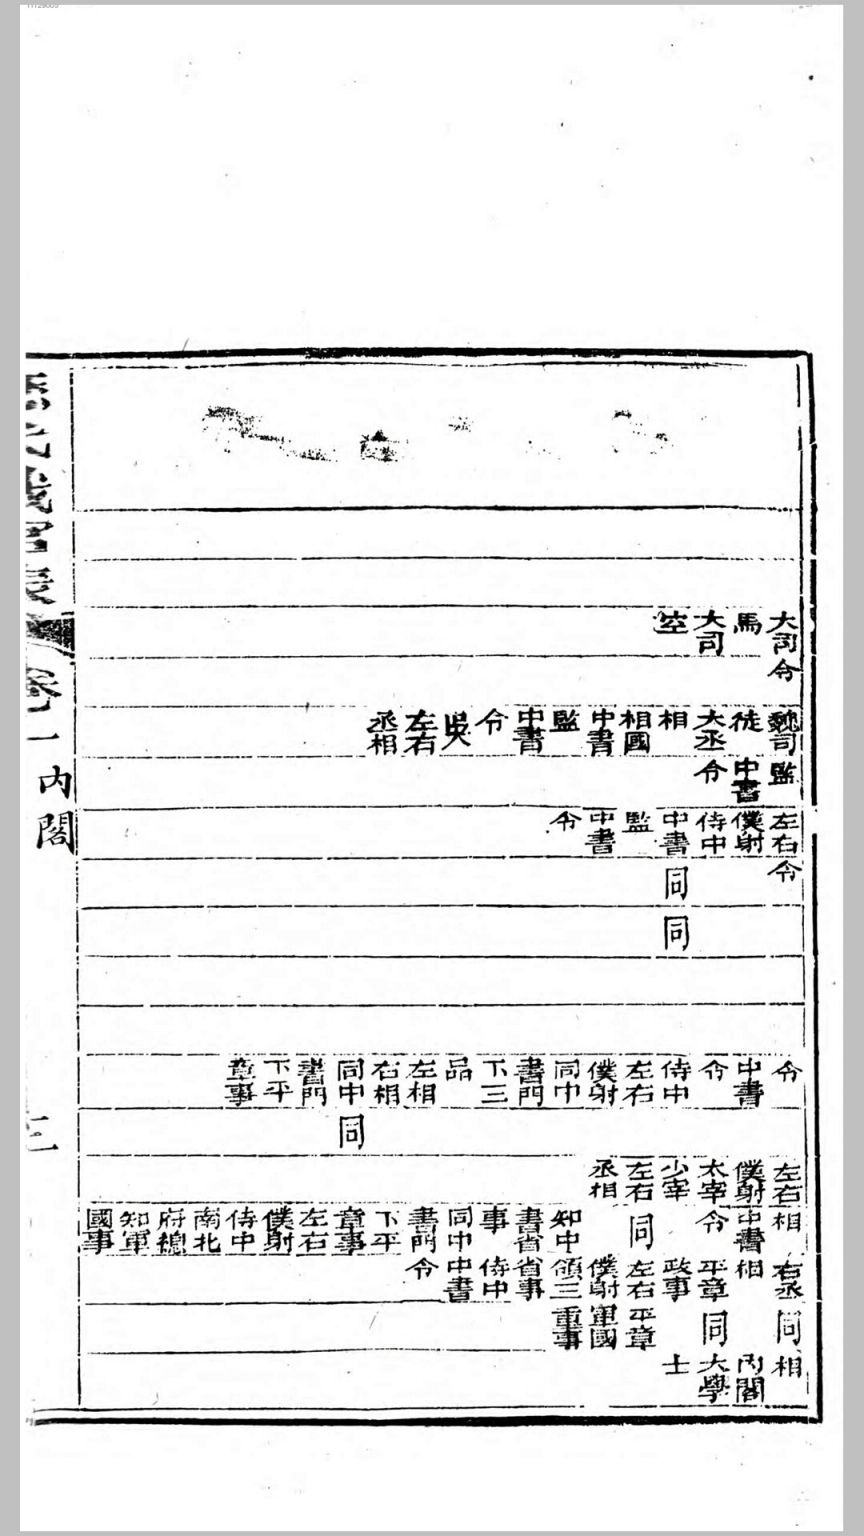 大司馬大司空
令
魏司徒大丞相相國中書監中書令吳左右丞相
監中書令
左右僕射侍中中書監中書令
令同
同
令中書令侍中左右僕射同中書門下三品左相右相同中書門下平章事
同
左右僕射太宰少宰左右丞相
相中書令同知中書省事同中書門下平章事左右僕射侍中南北府總知軍國事
右丞相平章政事左右僕射領三省事侍中中書令
同同平章軍國重事
相內閣大學士
歷代職官表 卷一 內閣 三